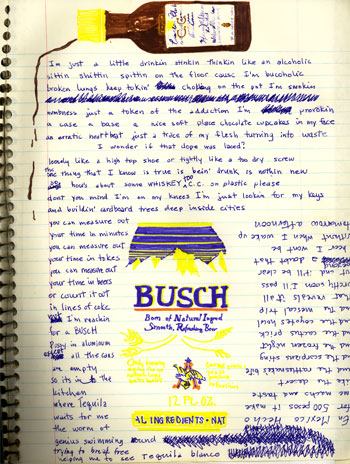 Im just a little drinkin stinkin thinkin like an alcoholic
sittin shittin spittin on the floor cause I'm buccholic
broken lungs keep tokin' chokeing on the pot I'm smokin
numbness just a token of the addiction I'm provokin
a case a base a nice soft place chocolate cupcakes in my face
an erratic heartbeat just a trace of my flesh turning into waste
I wonder if that dope was laced?
loosely like a high top shoe or tightly like a too dry screw
the one thing that I know is true is bein' drunk is nothin new
hows about some WHISKEY too C.C. on plastic please
dont you mind I'm on my knees I'm just lookin for my keys
and buildin' cardboard trees deep inside cities
you can measure out
your time in minutes
you can measure out
your time in tokes
you can measure out
your time in beers
or count it out
in lines of coke
I'm reachin
for a BUSCH
in aluminum
all the cans
are empty
so its in to the
kitchen
where Tequila
waits for me
the worm of
genius swimming round
trying to break free
helping me to see Tequila blanco
BUSCH
Born of Natural Ingred
Smooth, Refreshing Beer
12 FL OZ.
AL INGREDIENTS • NAT
tomorrow afternoon
when I wake up
hear I wont be
a doubt
and itll be clear
pretty soon I'll puke
not versatile at all
and the mescal trip
and the coyotes howl
and the cactus prick
and the frozen night
and the scorpions sting
and the rattlesnakes bite
like the desert
me and taste
for 500 pesos it make
En Mexico